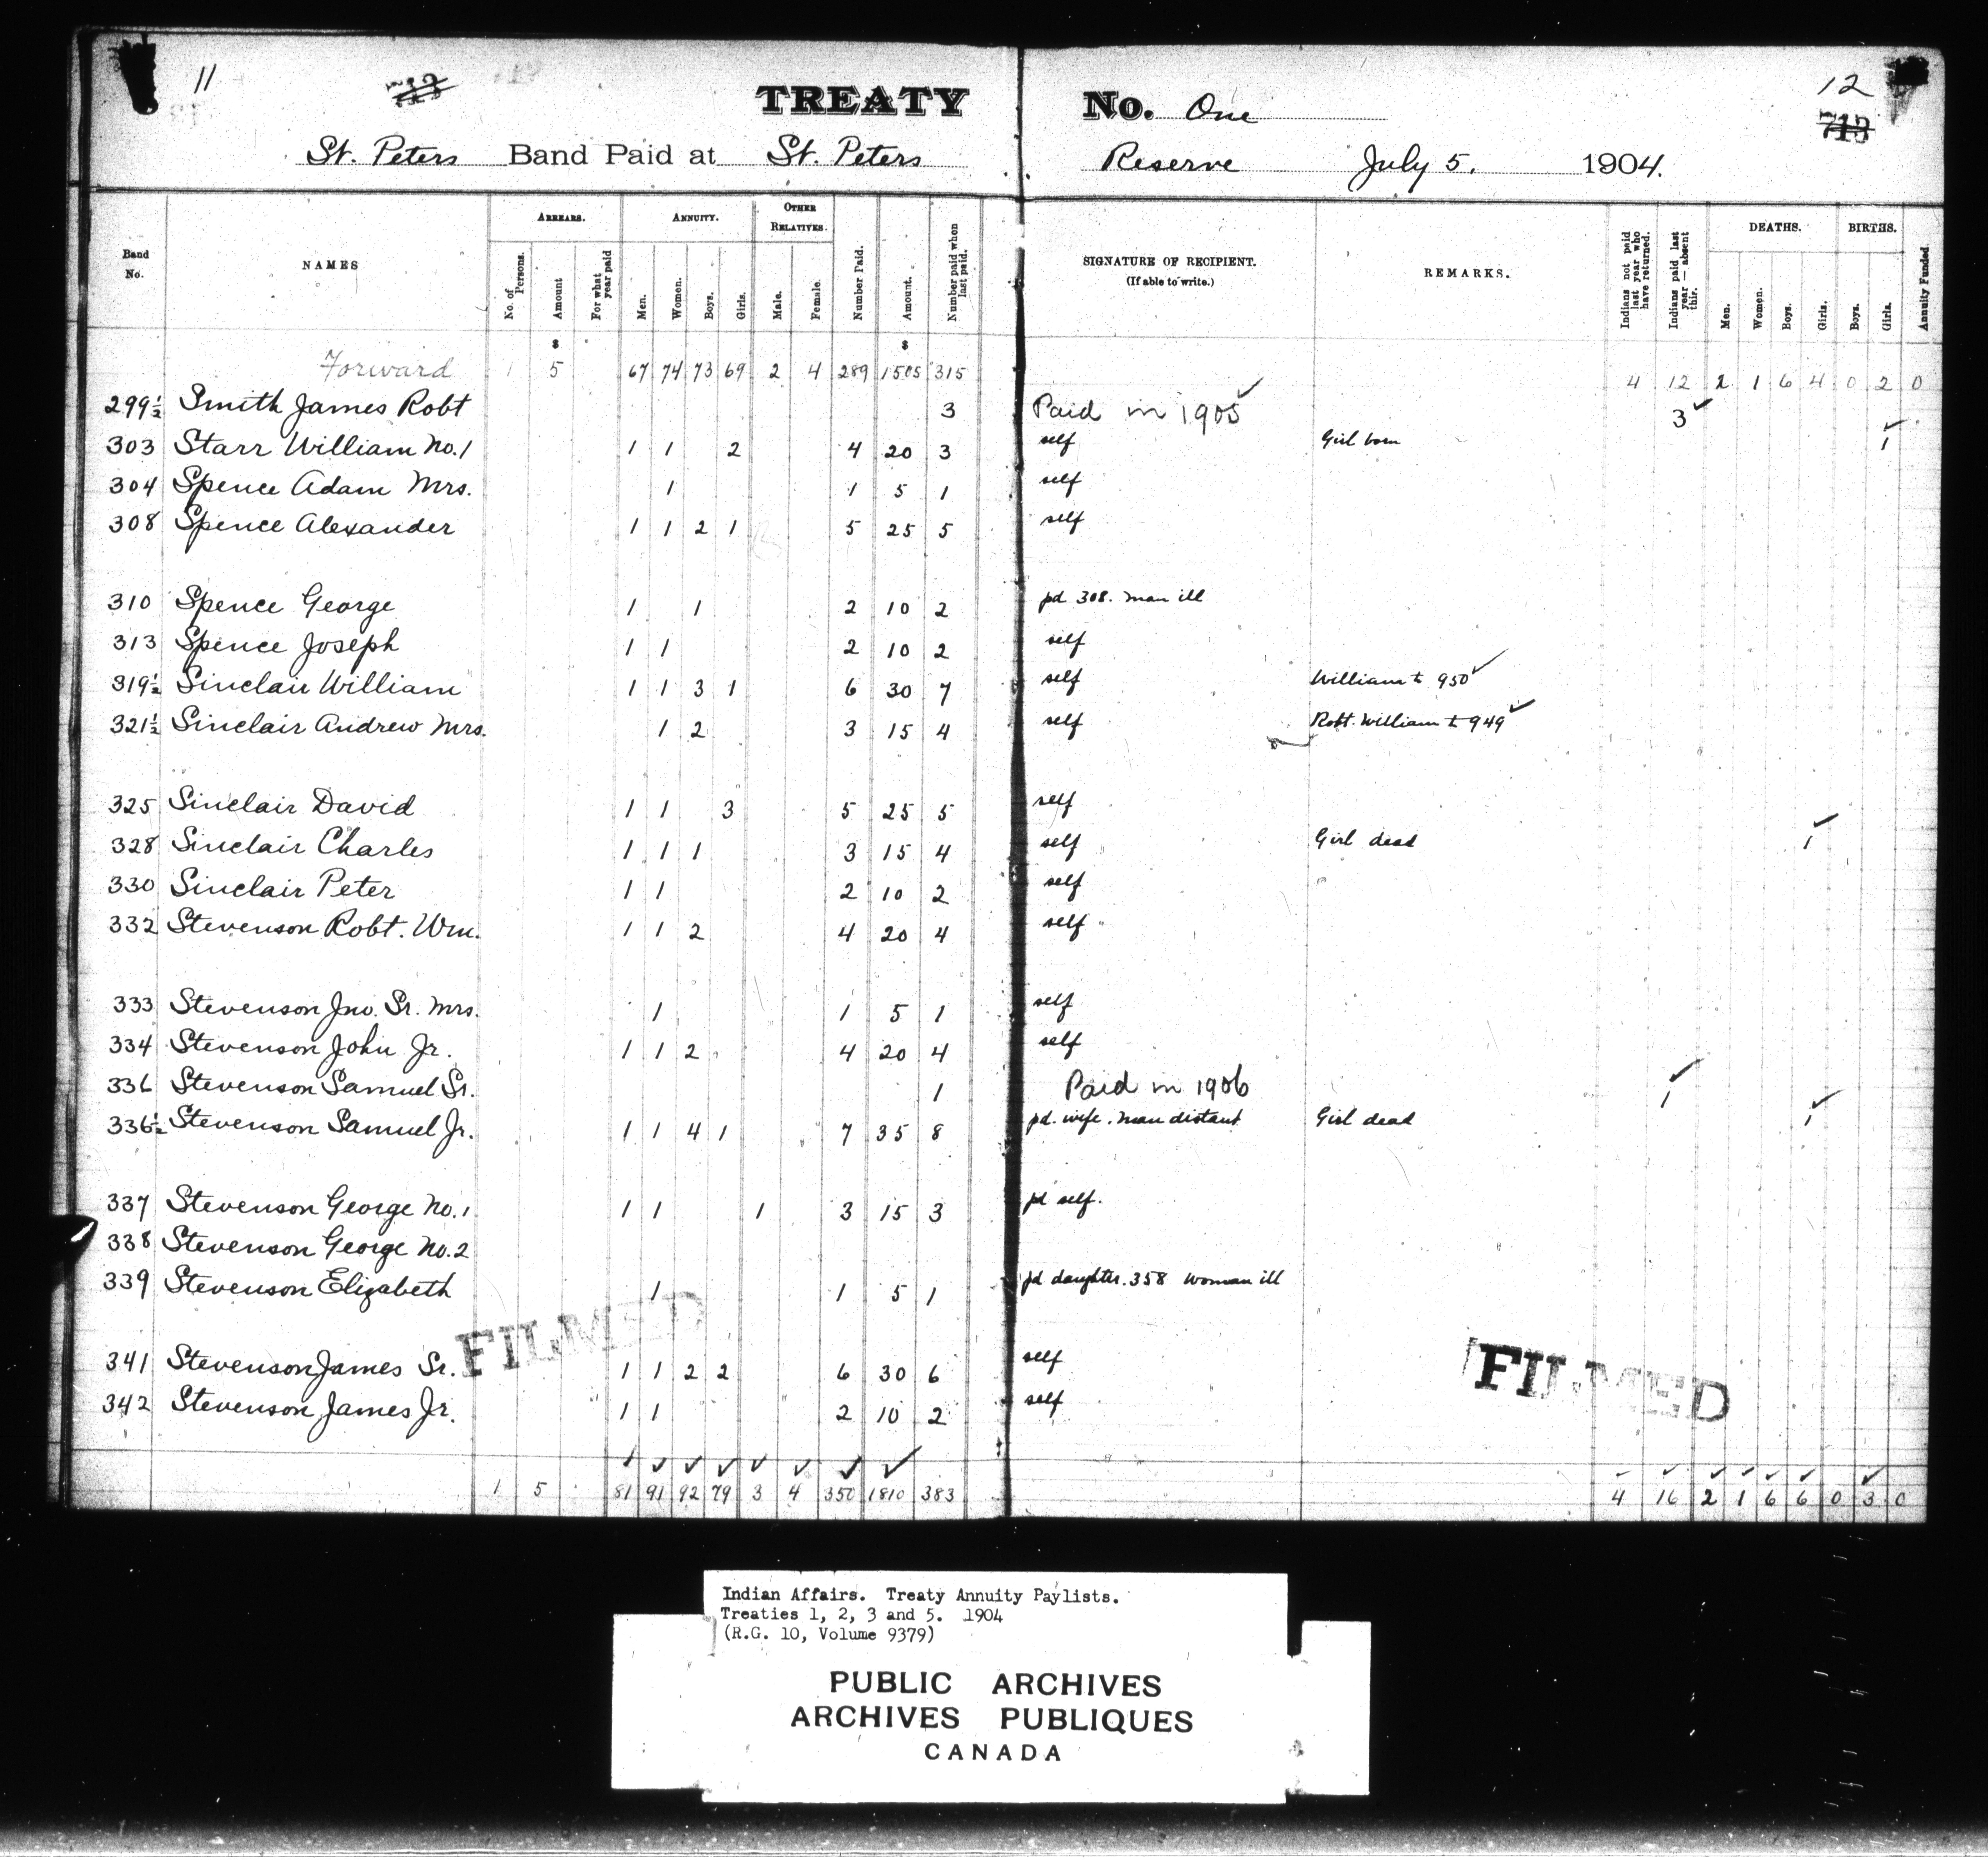 11 713 TREATY No. One 12 713
St. Peters Band Paid at St. Peters Reserve July 5. 1904.
Band No. NAMES ARREARS. ANNUITY. OTHER RELATIVES. Number Paid. Amount. Number paid when last paid. SIGNATURE OF RECIPIENT. (If able to write.) REMARKS. Indians not paid last year who have returned. Indians paid last year — absent this. DEATHS. BIRTHS. Annuity Funded
No. of Persons. Amount For what year paid Men. Women. Boys. Girls. Male. Female. Men. Women. Boys. Girls. Boys. Girls.
$ $
Forward 1 5 67 74 73 69 2 4 289 1505 315 4 12 2 1 6 4 0 2 0
299½ Smith James Robt 3 Paid in 1905 ✓ 3 ✓
303 Starr William No. 1 1 1 2 4 20 3 self Girl born 1 ✓
304 Spence Adam Mrs. 1 1 5 1 self
308 Spence Alexander 1 1 2 1 5 25 5 self
310 Spence George 1 1 2 10 2 pd 308. man ill
313 Spence Joseph 1 1 2 10 2 self
319½ Sinclair William 1 1 3 1 6 30 7 self William to 950 ✓
321½ Sinclair Andrew Mrs. 1 2 3 15 4 self Robt. William to 949 ✓
325 Sinclair David 1 1 3 5 25 5 self
328 Sinclair Charles 1 1 1 3 15 4 self Girl dead 1 ✓
330 Sinclair Peter 1 1 2 10 2 self
332 Stevenson Robt. Wm. 1 1 2 4 20 4 self
333 Stevenson Jno. Sr. Mrs. 1 1 5 1 self
334 Stevenson John Jr. 1 1 2 4 20 4 self
336 Stevenson Samuel Sr. 1 Paid in 1906 1 ✓
336½ Stevenson Samuel Jr. 1 1 4 1 7 35 8 pd. wife. man distant Girl dead 1 ✓
337 Stevenson George No. 1 1 1 1 3 15 3 pd self.
338 Stevenson George No. 2
339 Stevenson Elizabeth 1 1 5 1 pd daughter. 358 Woman ill
FILMED
341 Stevenson James Sr. 1 1 2 2 6 30 6 self
FILMED
342 Stevenson James Jr. 1 1 2 10 2 self
1 5 81 91 92 79 3 4 350 1810 383 4 16 2 1 6 6 0 3 0
Indian Affairs. Treaty Annuity Paylists.
Treaties 1, 2, 3 and 5. 1904
(R.G. 10, Volume 9379)
PUBLIC ARCHIVES
ARCHIVES PUBLIQUES
CANADA